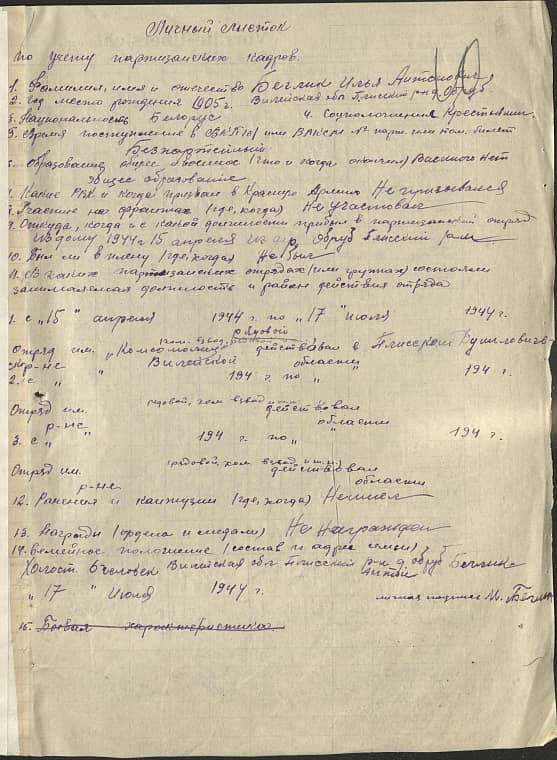 Личный листок
по учету партизанских кадров.
1. Фамилия, имя и отчество Беглик Илья Антонович
2. Год место рождения 1905 г. Вилейская обл Плисский р-н д. Обруб
3. Национальность Белорус 4. Соцположение Крестьянин
5. Время поступления в ВКП(б) или ВЛКСМ № парт. или ком. билет
Безпартейный
6. Образование общее и военное (что и когда окончил) Военного нет
Общее образование
7. Каким РВК и когда призван в Красную Армию Не призывался
8. Участие на фронтах (где, когда) Не участвовал
9. Откуда, когда и с какой должности прибыл в партизанский отряд
из дому 1944 г 15 апреля из дер. Обруб Плисский район
10. Был ли в плену (где, когда) Не был
11. В каких партизанских отрядах (или группах) состоял
занимаемая должность и район действия отряда
1. с „15" апреля 1944 г. по „17" июля 1944 г.
рядовой
Отряд им. „Комсомолец" действовал в Плисском Дуниловичс-
ком р-не Вилейской области
2. с „ " 194 г. по „ " 194 г.
рядовой, ком. взвод. и т.п.
Отряд им. действовал
р-не области
3. с „ " 194 г. по „ " 194 г.
рядовой, ком взвод. и т.п.
Отряд им. действовал
р-не области
12. Ранения и контузии (где, когда) Не имел
13. Награды (ордена и медали) Не награжден
14. Семейное положение (состав и адрес семьи)
Холост. 6 человек Вилейская обл Плисский р-н д. Обруб Беглик
„17" Июля 1944 г. личная подпись
15. Боевая характеристика